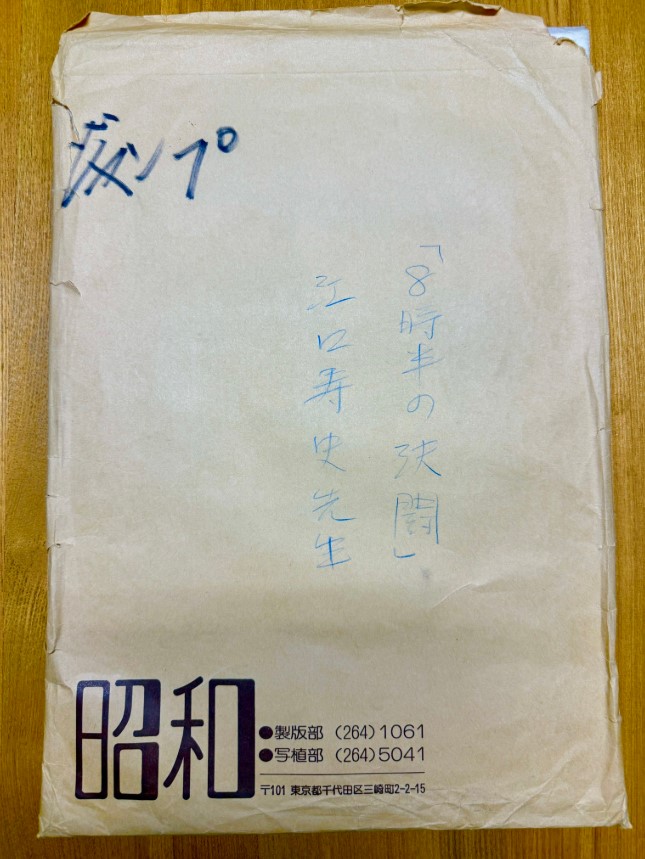 ジャンプ
「8時半の決闘」
江口寿史先生
昭和
●製版部 (264)1061
●写植部 (264)5041
〒101 東京都千代田区三崎町2-2-15